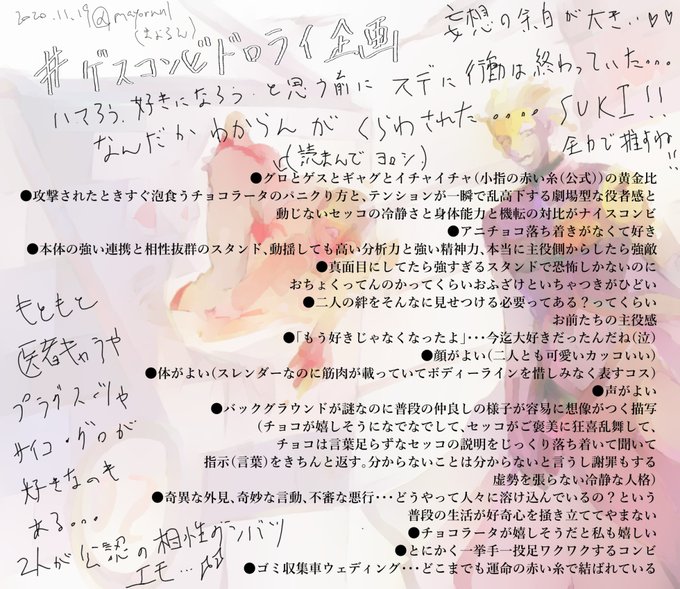 2020.11.19 @mayoron1
(まよろん)
#ゲスコンビドロライ企画
妄想の余白が大き…♡♡
いてろう、好きになろう、と思う前に スデに行動は終わっていた…
なんだか わからんが くらわされた.... SUKI!!
(読まんでヨロシ)
全力で推すね!!
●グロとゲスとギャグとイチャイチャ(小指の赤い糸(公式))の黄金比
●攻撃されたときすぐ泡食うチョコラータのパニクり方と、テンションが一瞬で乱高下する劇場型な役者感と
動じないセッコの冷静さと身体能力と機転の対比がナイスコンビ
●アニチョコ落ち着きがなくて好き
●本体の強い連携と相性抜群のスタンド、動揺しても高い分析力と強い精神力、本当に主役側からしたら強敵
●真面目にしてたら強すぎるスタンドで恐怖しかないのに
おちょくってんのかってくらいおふざけといちゃつきがひどい
●二人の絆をそんなに見せつける必要ってある?ってくらい
お前たちの主役感
●「もう好きじゃなくなったよ」・・・今迄大好きだったんだね(泣)
●顔がよい(二人とも可愛いカッコいい)
●体がよい(スレンダーなのに筋肉が載っていてボディーラインを惜しみなく表すコス)
●声がよい
●バックグラウンドが謎なのに普段の仲良しの様子が容易に想像がつく描写
(チョコが嬉しそうになでなでして、セッコがご褒美に狂喜乱舞して、
チョコは言葉足らずなセッコの説明をじっくり落ち着いて聞いて
指示(言葉)をきちんと返す。分からないことは分からないと言うし謝罪もする
虚勢を張らない冷静な人格)
●奇異な外見、奇妙な言動、不審な悪行・・・どうやって人々に溶け込んでいるの?という
普段の生活が好奇心を掻き立ててやまない
●チョコラータが嬉しそうだと私も嬉しい
●とにかく一挙手一投足ワクワクするコンビ
●ゴミ収集車ウェディング・・・どこまでも運命の赤い糸で結ばれている
もともと
医者キャラや
プラグスーツや
サイコ・グロが
好きなのも
ある...
2人が公認の相性バツグン
エモ…